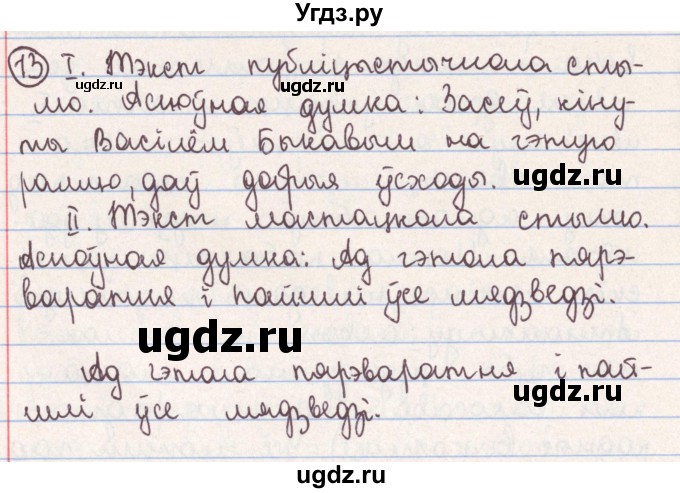 Угдз.ру
13 I. Тэкст публіцыстычнага сты-
лю. Асноўная думка. Засеў, кіну-
ты Васілём Быкавым на гэтую
раллю, даў добрыя ўсходы.
ugdz.ru
II. Тэкст мастацкага стылю.
Асноўная думка: Ад гэтага пярэ-
варатня і пайшлі ўсе мядзведзі.
ugdz.ru
ugdz.ru
Ад гэтага пярэваратня і пай-
шлі ўсе мядзведзі.
ugdz.ru
ugdz.ru